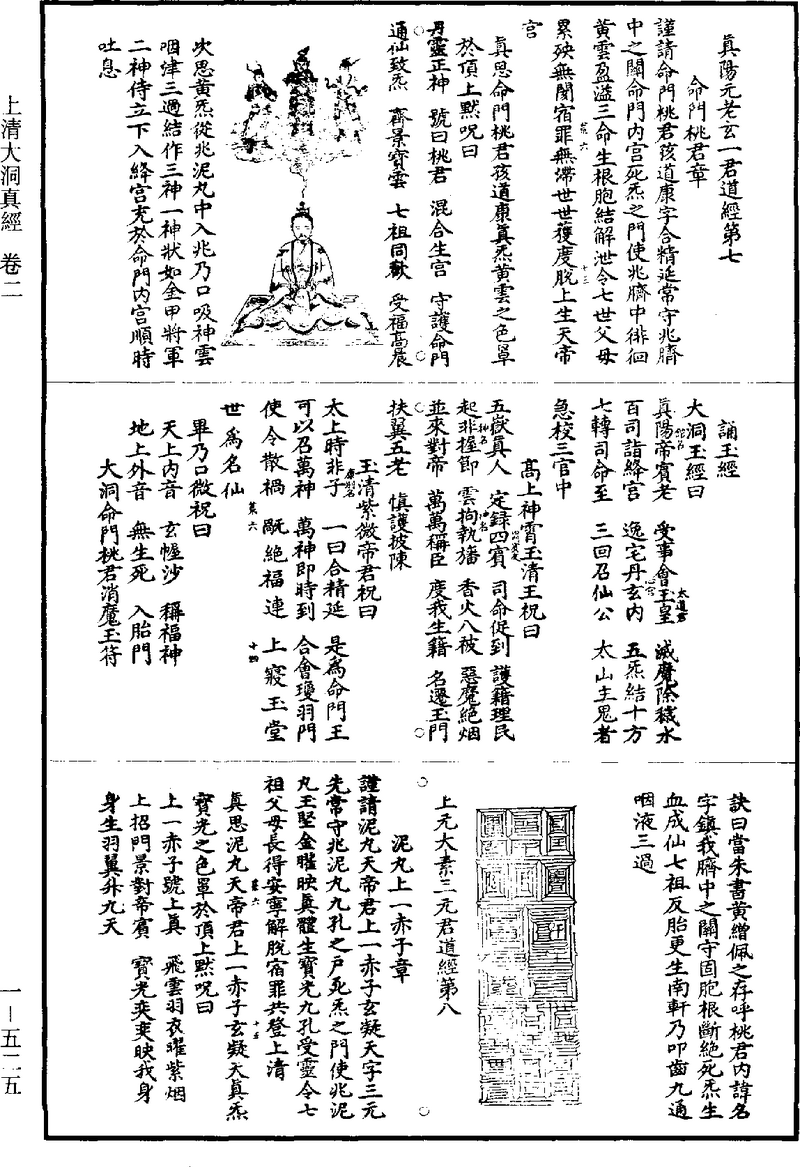 真陽元老玄一君道經第七
命門桃君章
謹請命門桃君孩道康字合精延常守兆臍
中之關命門內宮死炁之門使兆臍中徘徊
黃雲盈溢三命生根胞結解泄令七世父母
累殃無閡宿罪無滯世世獲度脫上生天帝
宮
真思命門桃君孩道康真炁黃雲之色罩
於頂上默呪曰
丹靈正神 號曰桃君 混合生宮 守護命門
通仙致炁 齊景寶雲 七祖同歡 受福高晨
次思黃炁從兆泥丸中入兆乃口吸神雲
咽津三過結作三神一神狀如金甲將軍
二神侍立下入絳宮充於命門內宮順時
吐息
誦玉經
大洞玉經曰
真陽帝賓老 受事會玉皇 滅魔除穢水
百司詣絳宮 逸宅丹玄內 五炁結十方
七轉司命至 三回召仙公 太山主鬼者
急校三官中
高上神霄玉清王祝曰
五嶽真人 定錄四賓 司命促到 護籍理民
起非握節 雲拘執旛 香火八被 惡魔絕烟
並來對帝 萬萬稱臣 度我生籍 名遷玉門
扶翼五老 慎護披陳
玉清紫微帝君祝曰
太上時非子 一曰合精延 是為命門王
可以召萬神 萬神即時到 合會瓊羽門
使令散禍 敺絕福連 上寢玉堂
世為名仙
畢乃口微祝曰
天上內音 玄幄沙 稱福神
地上外音 無生死 入胎門
大洞命門桃君消魔玉符
訣曰當朱書黃繒佩之存呼桃君內諱名
字鎮我臍中之關守固胞根斷絕死炁生
血成仙七祖反胎更生南軒乃叩齒九通
咽液三過
上元太素三元君道經第八
泥丸上一赤子章
謹請泥丸天帝君上一赤子玄凝天字三元
先常守兆泥丸九孔之戶死炁之門使兆泥
丸玉堅金䂫映真體生寶光九孔受靈令七
祖父母長得安寧解脫宿罪共登上清
真思泥丸天帝君上一赤子玄凝天真炁
寶光之色罩於頂上默呪曰
上一赤子號上真 飛雲羽衣曜紫烟
上招門景對帝賓 寶光奕奕映我身
身生羽翼升九天
上清大洞真經 卷二
一—五二五